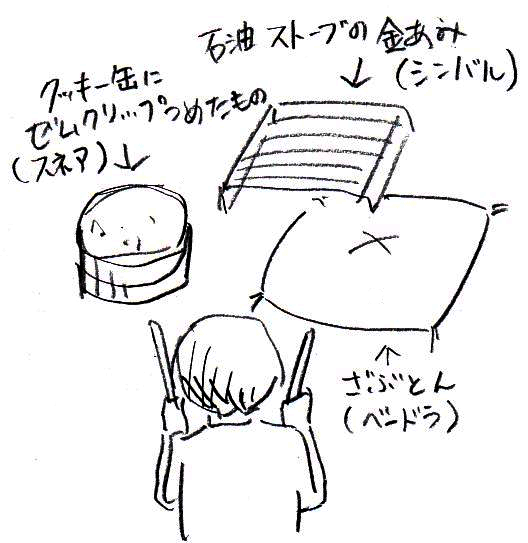 石油ストーブの金あみ
(シンバル)
クッキー缶に
ゼムクリップつめたもの
(スネア)
ざぶとん
(ベードラ)